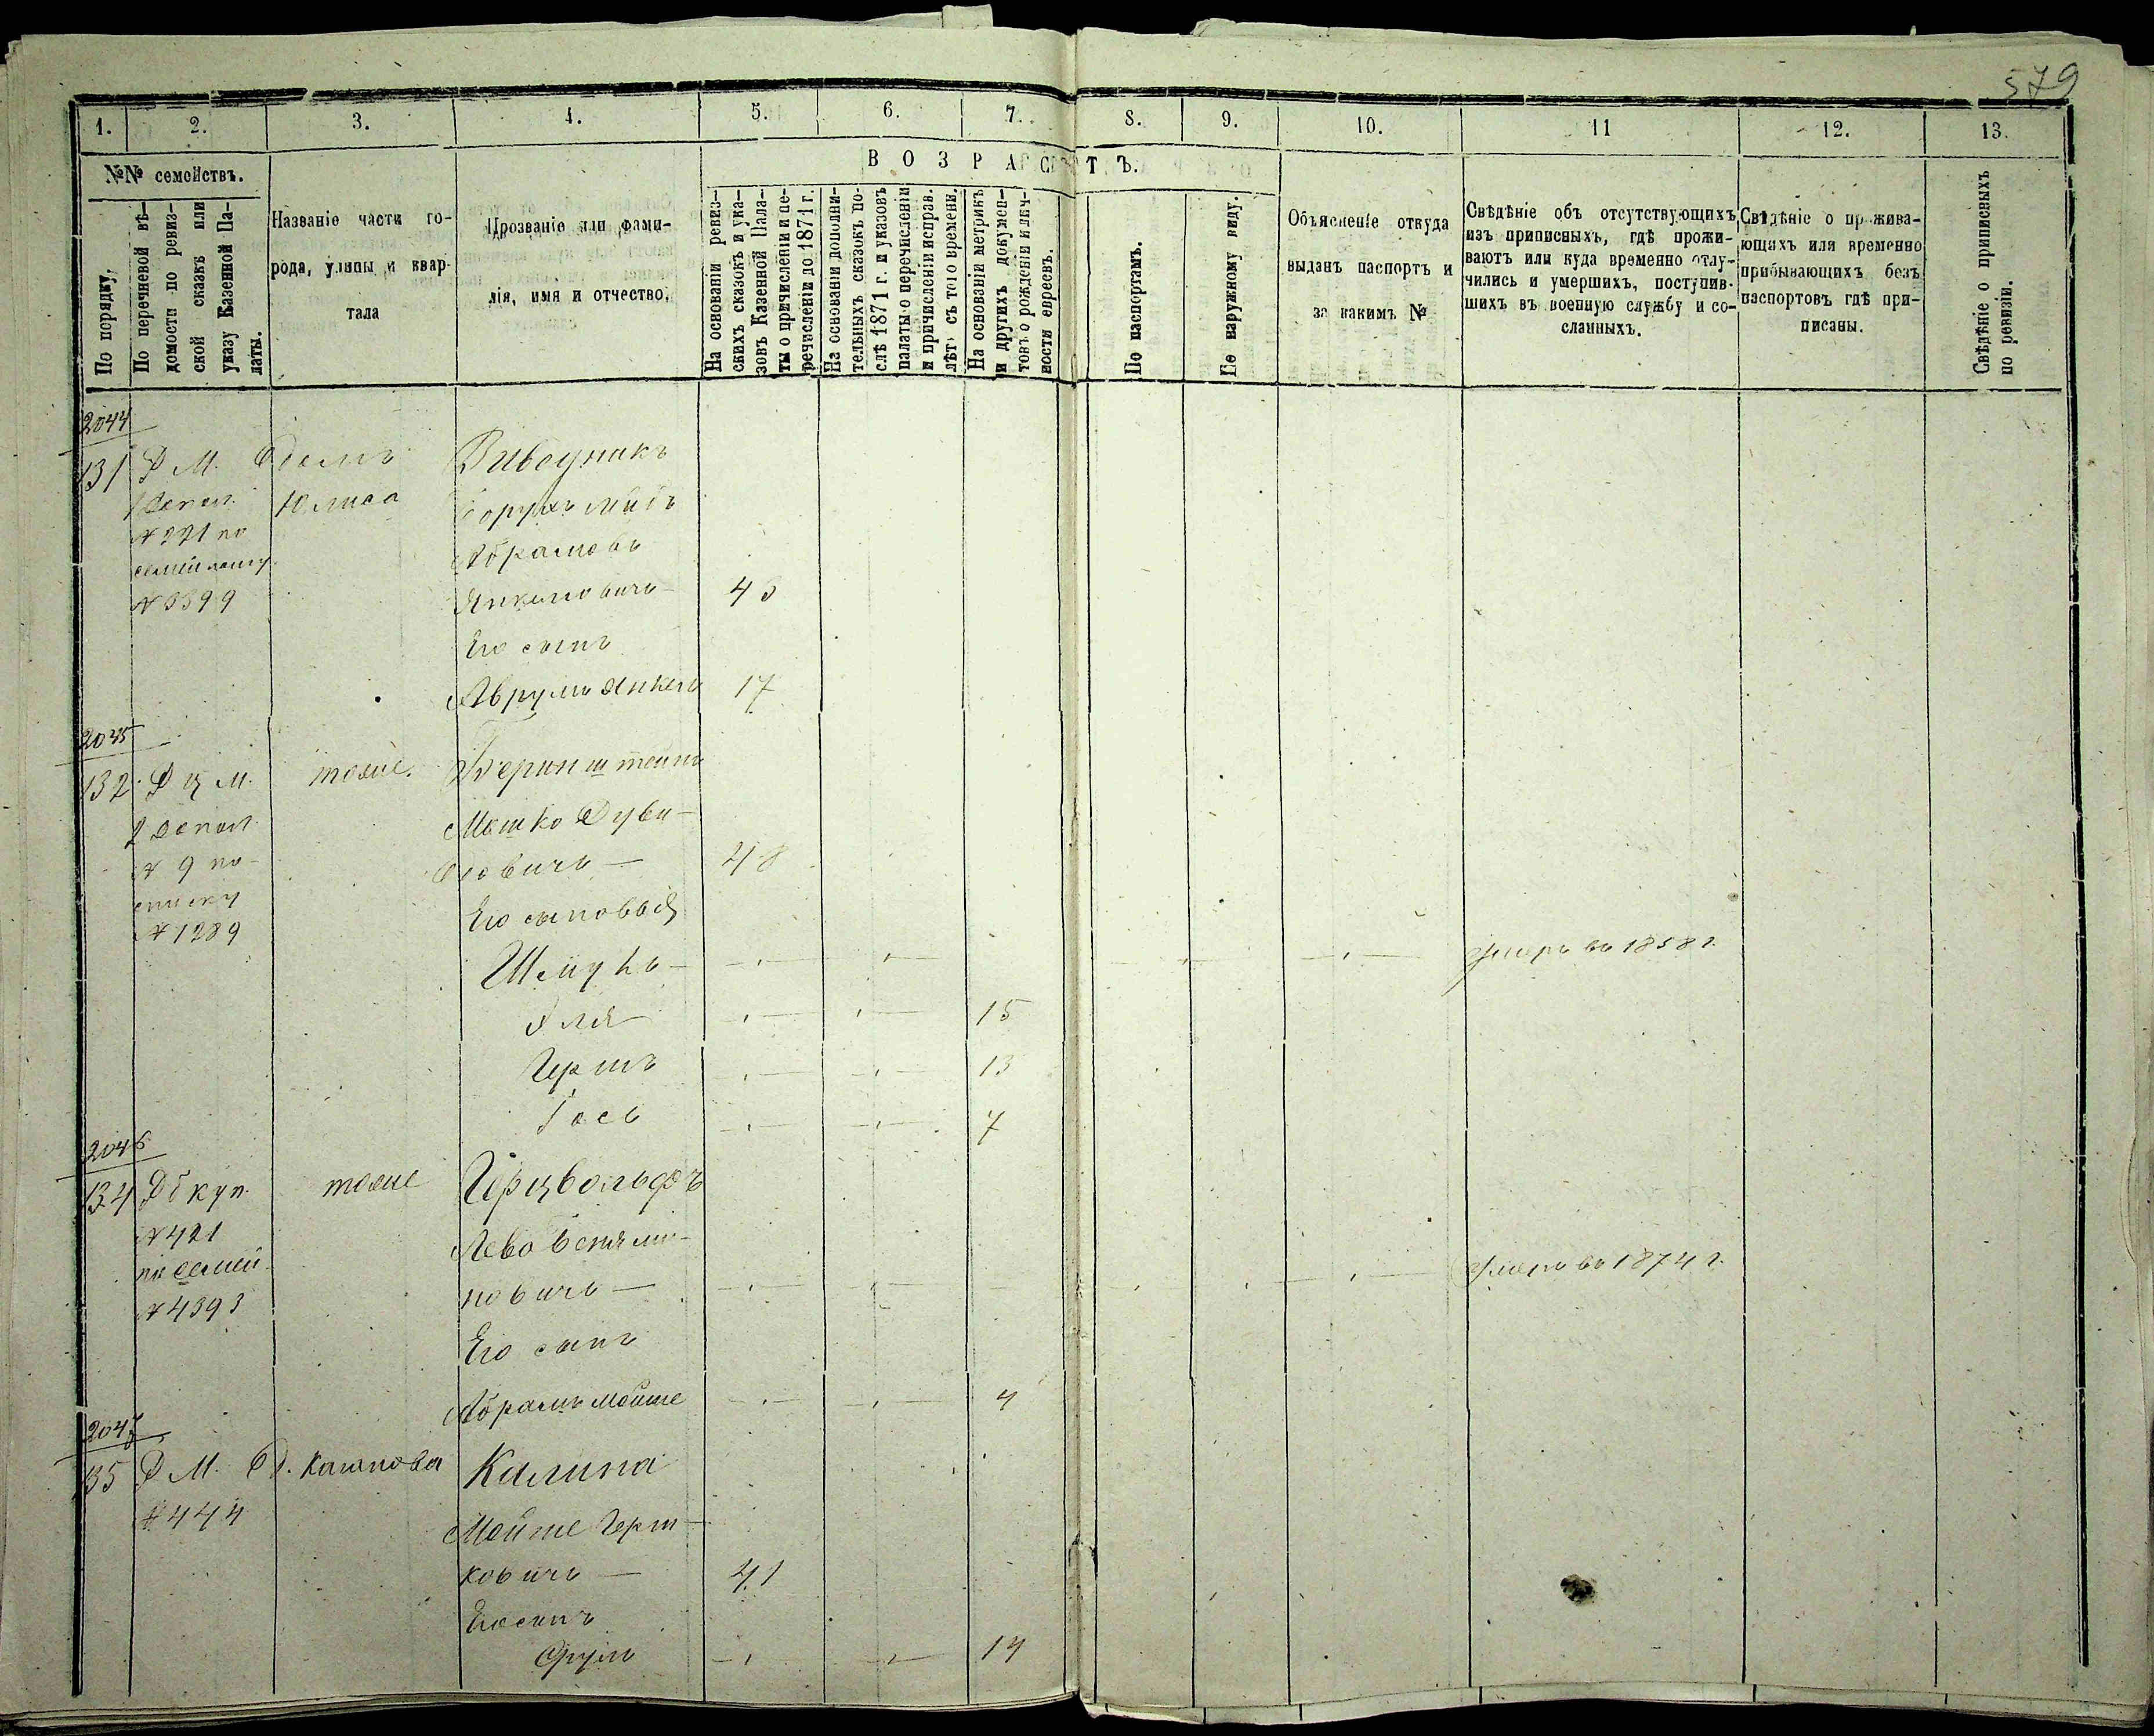 579
1. 2. 3. 4. 5. 6. 7. 8. 9. 10. 11 12. 13.
№№ семействъ.
По порядку.
По перечневой вѣ-
домости по ревиз-
ской сказкѣ или
указу Казенной Па-
латы.
Названіе части го-
рода, улицы и квар-
тала
Прозваніе или фами-
лія, имя и отчество.
ВОЗРАСТЪ.
На основаніи ревиз-
скихъ сказокъ и ука-
зовъ Казенной Пала-
ты о причисленіи и пе-
речисленіи до 1871 г.
На основаніи дополни-
тельныхъ сказокъ по-
слѣ 1871 г. и указовъ
палаты о перечисленіи
и причисленіи исправ.
лѣтъ съ того времени.
На основаніи метрикъ
и другихъ докумен-
товъ о рожденіи и лич-
ности евреевъ.
По паспортамъ.
По наружному виду.
Объясненіе откуда
выданъ паспортъ и
за какимъ №
Свѣдѣніе объ отсутствующихъ
изъ приписныхъ, гдѣ прожи-
ваютъ или куда временно отлу-
чились и умершихъ, поступив-
шихъ въ военную службу и со-
сланныхъ.
Свѣдѣніе о прожива-
ющихъ или временно
прибывающихъ безъ
паспортовъ гдѣ при-
писаны.
Свѣдѣніе о приписныхъ
по ревизіи.
2044
131 Р М.
№ 221 по
№ 3399
Абрамовъ
Янкеловичъ — 43
Его сынъ
Аврумъ Янкель 17
2045
132 Р Ц М. тоже. Беринштейнъ
№ 9 по
списку
№ 1289
Мошко Дуви-
довичъ — 48
Его сыновья
Шмуль — умеръ въ 1858 г.
Эля 15
Гершъ 13
Іось 7
2046
134 куп. тоже Герцвольфъ
№ 421
по семей
№ 4393
Лейба Беньями-
новичъ — умеръ въ 1874 г.
Его сынъ
Абрамъ Мойше 4
2047
135 Р М. Калина
№ 444
Мойше Герш-
ковичъ — 41
Его сынъ
Сруль 14